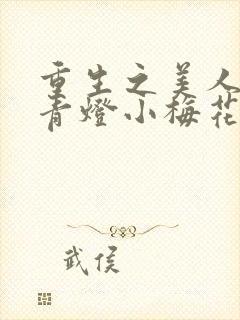 重生之美人
青燈小梅花
武侯